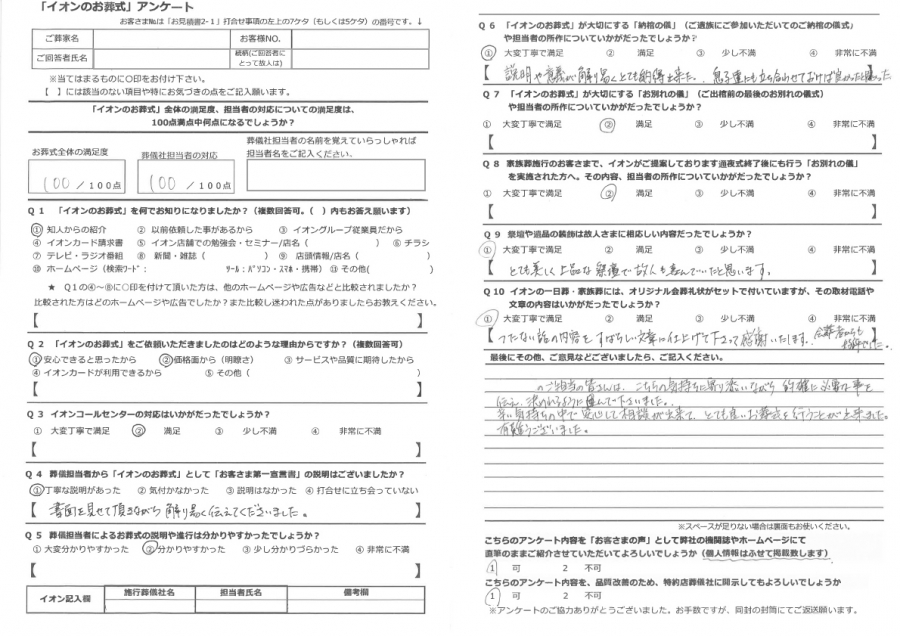 「イオンのお葬式」アンケート
お客さま№は「お見積書2-1」打合せ事項の左上の7ケタ（もしくは5ケタ）の番号です。↓
ご葬家名
お客様NO.
ご回答者氏名
続柄(ご回答者にとって故人は)
※当てはまるものに○印をお付け下さい。
【　】には該当のない項目や特にお気づきの点をご記入願います。
「イオンのお葬式」全体の満足度、担当者の対応についての満足度は、
100点満点中何点になるでしょうか？
お葬式全体の満足度
葬儀社担当者の対応
葬儀社担当者の名前を覚えていらっしゃれば
担当者名をご記入ください。
100 / 100点
100 / 100点
Q 1　「イオンのお葬式」を何でお知りになりましたか？（複数回答可。(　) 内もお答え願います）
① 知人からの紹介　② 以前依頼した事があるから　③ イオングループ従業員だから
④ イオンカード請求書　⑤ イオン店舗での勉強会・セミナー/店名（　　）　⑥ チラシ
⑦ テレビ・ラジオ番組　⑧ 新聞・雑誌（　　）　⑨ 店頭情報/店名（　　）
⑩ ホームページ（検索ﾜｰﾄﾞ：　　ﾂｰﾙ：ﾊﾟｿｺﾝ・ｽﾏﾎ・携帯）　⑪ その他(　　)
★　Ｑ1の④～⑧に○印を付けて頂いた方は、他のホームページや広告などと比較されましたか？
比較された方はどのホームページや広告でしたか？また比較し迷われた点がありましたらお教えください。
【　】
Q 2　「イオンのお葬式」をご依頼いただきましたのはどのような理由からですか？（複数回答可）
① 安心できると思ったから　② 価格面から（明瞭さ）　③ サービスや品質に期待したから
④ イオンカードが利用できるから　⑤ その他（　　）
【　】
Q 3　イオンコールセンターの対応はいかがだったでしょうか？
①　大変丁寧で満足　②　満足　③　少し不満　④　非常に不満
【　】
Q 4　葬儀担当者から「イオンのお葬式」として「お客さま第一宣言書」の説明はございましたか？
① 丁寧な説明があった　② 気付かなかった　③ 説明はなかった　④ 打合せに立ち会っていない
【 書面を見せて頂きながら 解り易く伝えてくださいました。】
Q 5　葬儀担当者によるお葬式の説明や進行は分かりやすかったでしょうか？
① 大変分かりやすかった　② 分かりやすかった　③ 少し分かりづらかった　④ 非常に不満
【　】
イオン記入欄
施行葬儀社名
担当者氏名
備考欄
Q 6　「イオンのお葬式」が大切にする「納棺の儀」（ご遺族にご参加いただいてのご納棺の儀式）
や担当者の所作についていかがだったでしょうか？
①　大変丁寧で満足　②　満足　③　少し不満　④　非常に不満
【 説明や意義が解り易くとても納得出来た。息子達にも立ち合わせておけば良かったと思った 】
Q 7　「イオンのお葬式」が大切にする「お別れの儀」（ご出棺前の最後のお別れの儀式）
や担当者の所作についていかがだったでしょうか？
①　大変丁寧で満足　②　満足　③　少し不満　④　非常に不満
【　】
Q 8　家族葬施行のお客さまで、イオンがご提案しております通夜式終了後にも行う「お別れの儀」
を実施された方へ。その内容、担当者の所作についていかがだったでしょうか？
①　大変丁寧で満足　②　満足　③　少し不満　④　非常に不満
【　】
Q 9　祭壇や遺品の装飾は故人さまに相応しい内容だったでしょうか？
①　大変丁寧で満足　②　満足　③　少し不満　④　非常に不満
【 とても美しく上品な祭壇で故人も喜んでいたと思います。】
Q 10　イオンの一日葬・家族葬には、オリジナル会葬礼状がセットで付いていますが、その取材電話や
文章の内容はいかがだったでしょうか？
①　大変丁寧で満足　②　満足　③　少し不満　④　非常に不満
【 つたない話の内容を すばらしい文章に仕上げて下さって感謝いたします。会葬者からも
最後にその他、ご意見などございましたら、ご記入ください。
のご担当の皆さんは、こちらの気持ちに寄り添いながら 的確に必要な事を
伝え、決められるように運んで下さいました。
気持ちの中で安心して相談が出来て、とても良いお葬式を行うことが出来ました。
有難うございました。
※スペースが足りない場合は裏面もお使いください。
こちらのアンケート内容を「お客さまの声」として弊社の機関誌やホームページにて
直筆のままご紹介させていただいてよろしいでしょうか（個人情報はふせて掲載致します）
1　可　2　不可
こちらのアンケート内容を、品質改善のため、特約店葬儀社に開示してもよろしいでしょうか
1　可　2　不可
※アンケートのご協力ありがとうございました。お手数ですが、同封の封筒にてご返送願います。